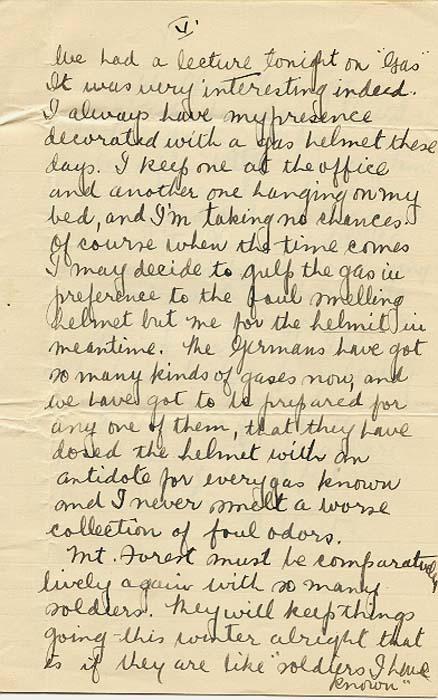 V
We had a lecture tonight on "Gas"
It was very interesting indeed.
I always have my presence
decorated with a gas helmet these
days. I keep one at the office
and another one hanging on my
bed, and I'm taking no chances.
Of course when the time comes
I may decide to gulp the gas in
preference to the foul smelling
helmet but me for the helmit in
meantime. The Germans have got
so many kinds of gases now, and
we have got to be prepared for
any one of them, that they have
dosed the helmet with an
antidote for every gas known
and I never smelt a worse
collection of foul odors.
Mt. Forest must be comparatively
lively again with so many
soldiers. They will keep things
going this winter alright that
is if they are like "soldiers I have
known"